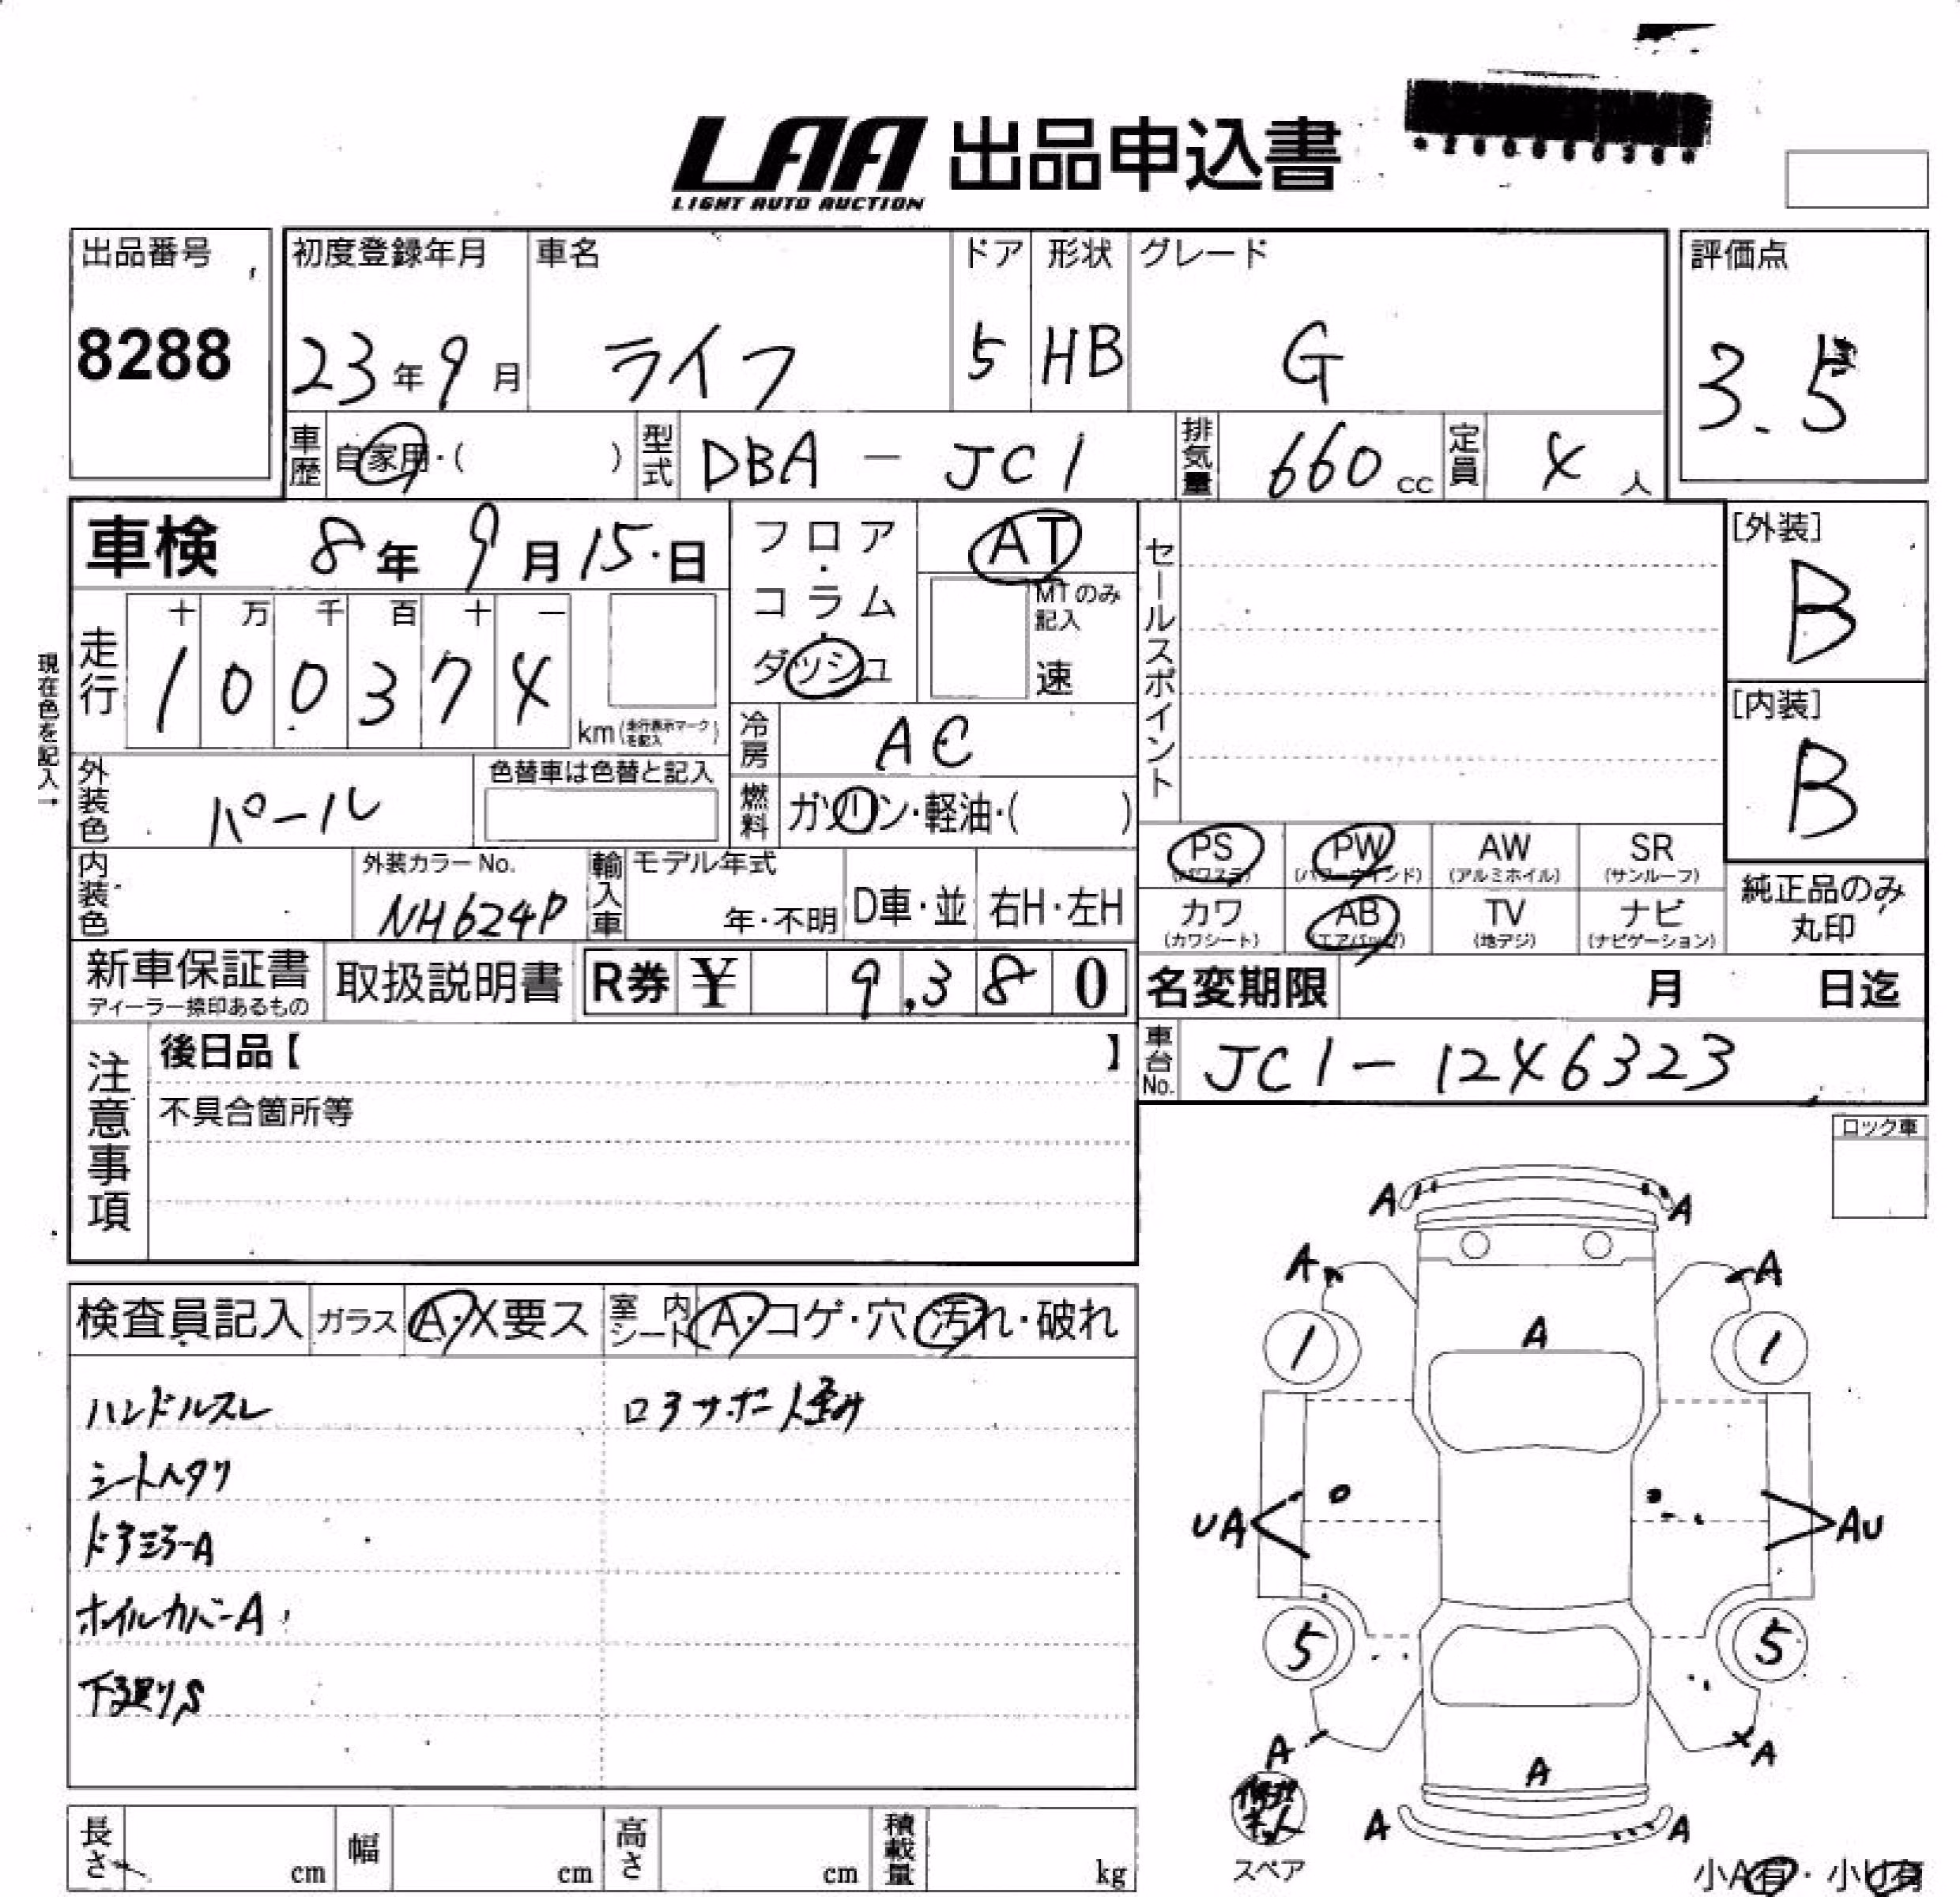 LAA 出品申込書
LIGHT AUTO AUCTION
出品番号
8288
初度登録年月
23年9月
車名
ライフ
ドア
5
形状
HB
グレード
G
評価点
3.5
車歴
自家用・( )
型式
DBA-JC1
排気量
660cc
定員
4人
車検 8年9月15日
フロア・コラム・ダッシュ
AT
MTのみ記入
速
セールスポイント
[外装]
B
[内装]
B
現在色を記入→
走行
十 万 千 百 十 一
1 0 0 3 7 4
km(走行表示マークを記入)
冷房
AC
外装色
パール
色替車は色替と記入
燃料
ガソリン・軽油・( )
内装色
外装カラーNo.
NH624P
輸入車
モデル年式
年・不明
D車・並
右H・左H
PS
(パワステ)
PW
(パワーウインド)
AW
(アルミホイル)
SR
(サンルーフ)
カワ
(カワシート)
AB
(エアバッグ)
TV
(地デジ)
ナビ
(ナビゲーション)
純正品のみ
丸印
新車保証書
ディーラー捺印あるもの
取扱説明書
R券 ¥ 9,380
名変期限 月 日迄
注意事項
後日品【 】
不具合箇所等
車台No.
JC1-1246323
ロック車
検査員記入
ガラス
A・X要ス
室内シート
A・コゲ・穴・汚れ・破れ
ハンドルスレ
ロアサポート歪み
シートヘタリ
ドアミラーA
ホイルカバーA
下廻りS
A A
A A
1 1
A
UA AU
5 5
A A
A
A A
修理キット
スペア
小A有・小U有
長さ cm
幅 cm
高さ cm
積載量 kg